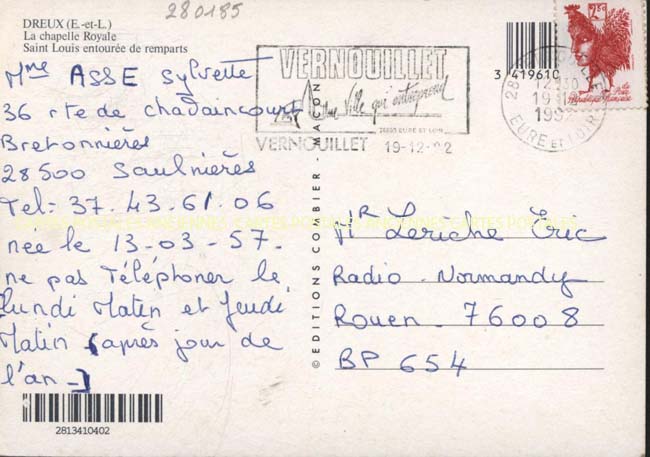 280185
DREUX (E.-et-L.)
La chapelle Royale
Saint Louis entourée de remparts
Mme ASSE Sylvette
36 rte de chadaincourt
Bretonnières
28500 Saulnières
Tel: 37.43.61.06
née le 13-03-57-
ne pas Téléphoner le
lundi Matin et Jeudi
Matin (après jour de
l'an-)
2813410402
VERNOUILLET
Une Ville qui entreprend
28500 EURE ET LOIR
VERNOUILLET 19-12-92
© EDITIONS COMBIER - MACON
3 419610
2,50
28
12 H 30
19 12
1992
EURE ET LOIR
Mr Leriche Eric
Radio-Normandy
Rouen-76008
BP 654